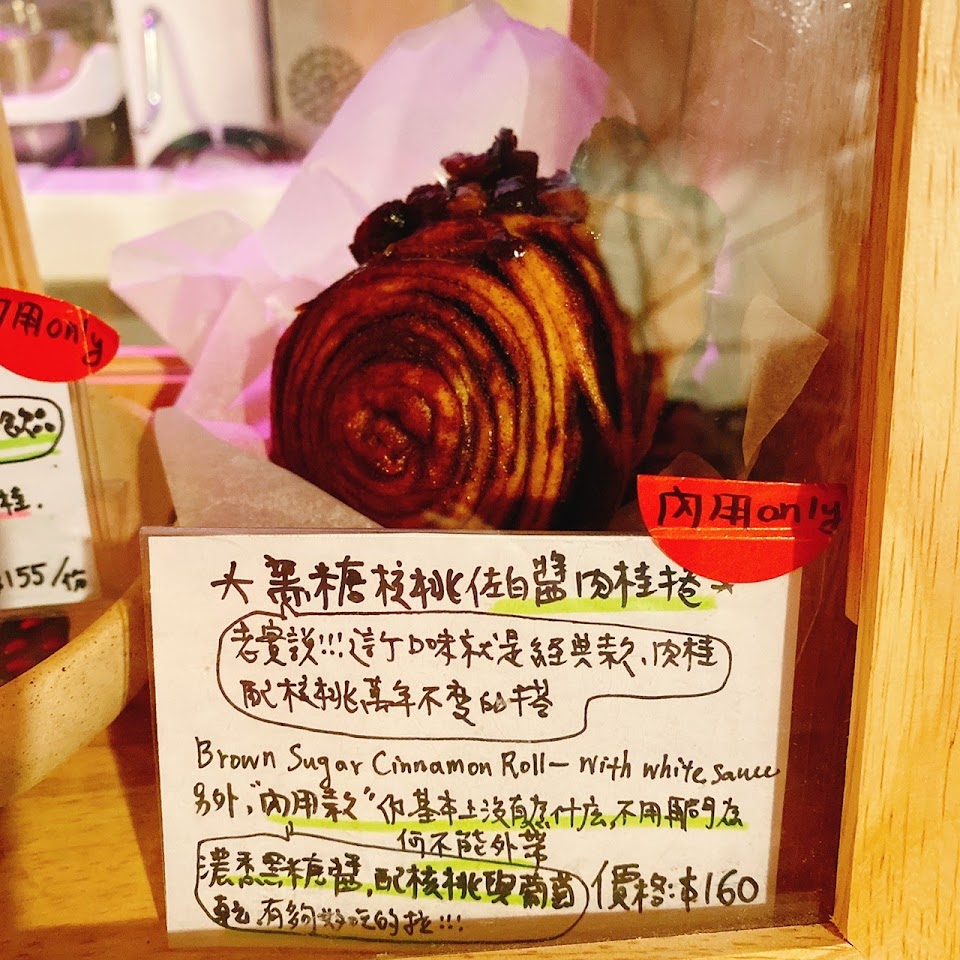 內用only
內用only
黑糖核桃佐白醬肉桂捲
老實說!!!這個口味就是經典款、肉桂
配核桃萬年不變的搭
Brown Sugar Cinnamon Roll - With white sauce
另外,"內用款"你基本上沒有為什么,不用再問店
何不能外帶
濃香黑糖醬,配核桃與葡萄
乾 有夠好吃的拉!!!
價格:$160
款
桂.
$155/份